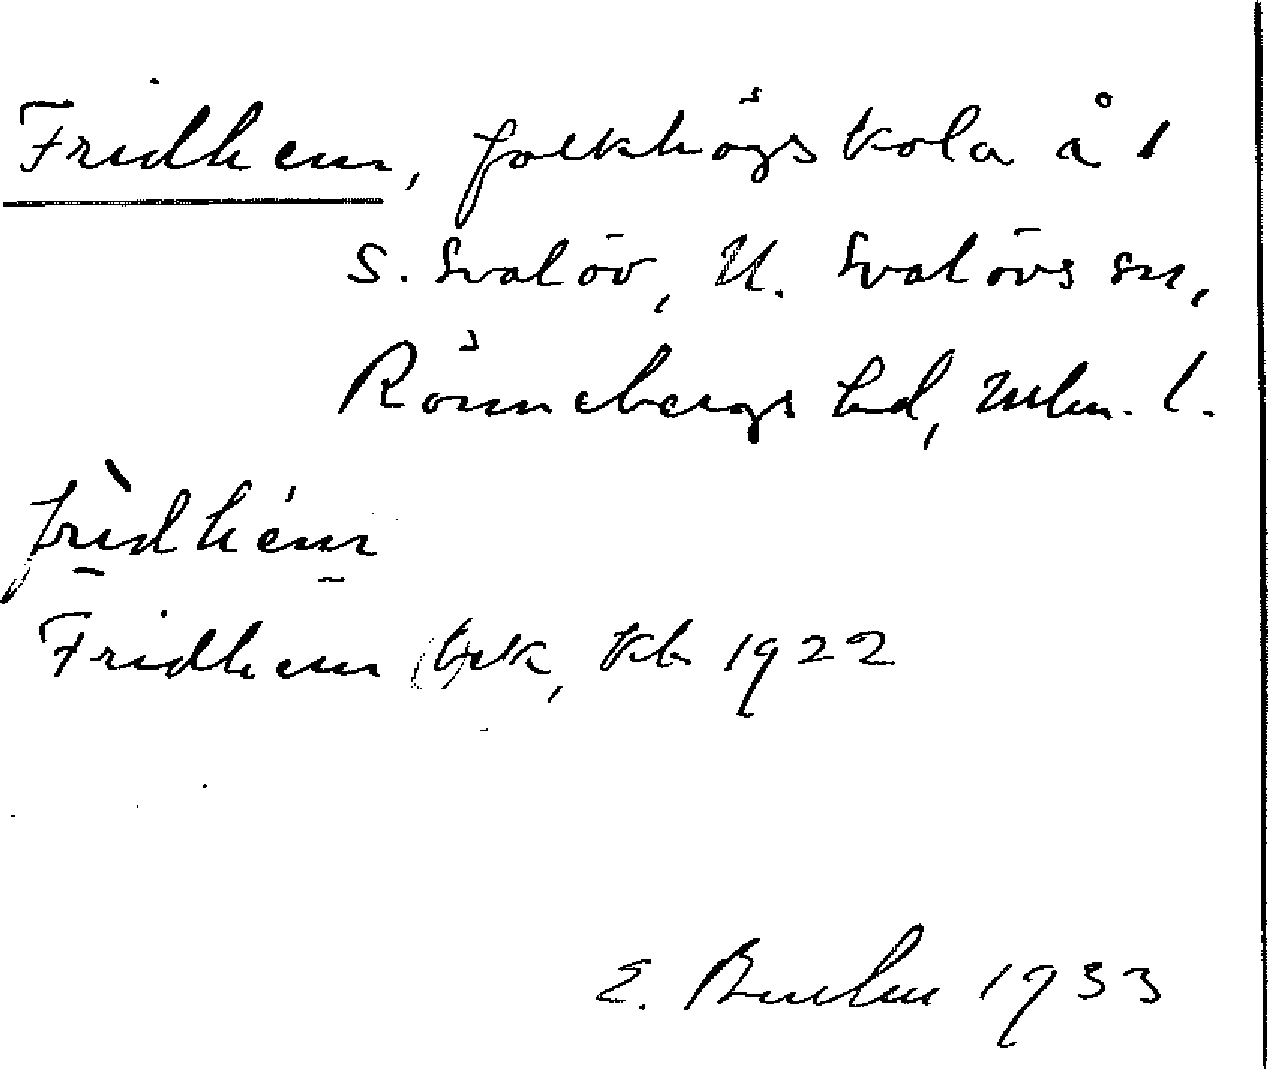 Fridhem, folkhögskola å 1
S. Svalöv, U. Svalövs sn,
Rönnebergs hd, Mlm. l.
frìdhém
Fridhem bsk, kb 1922
E. 1933